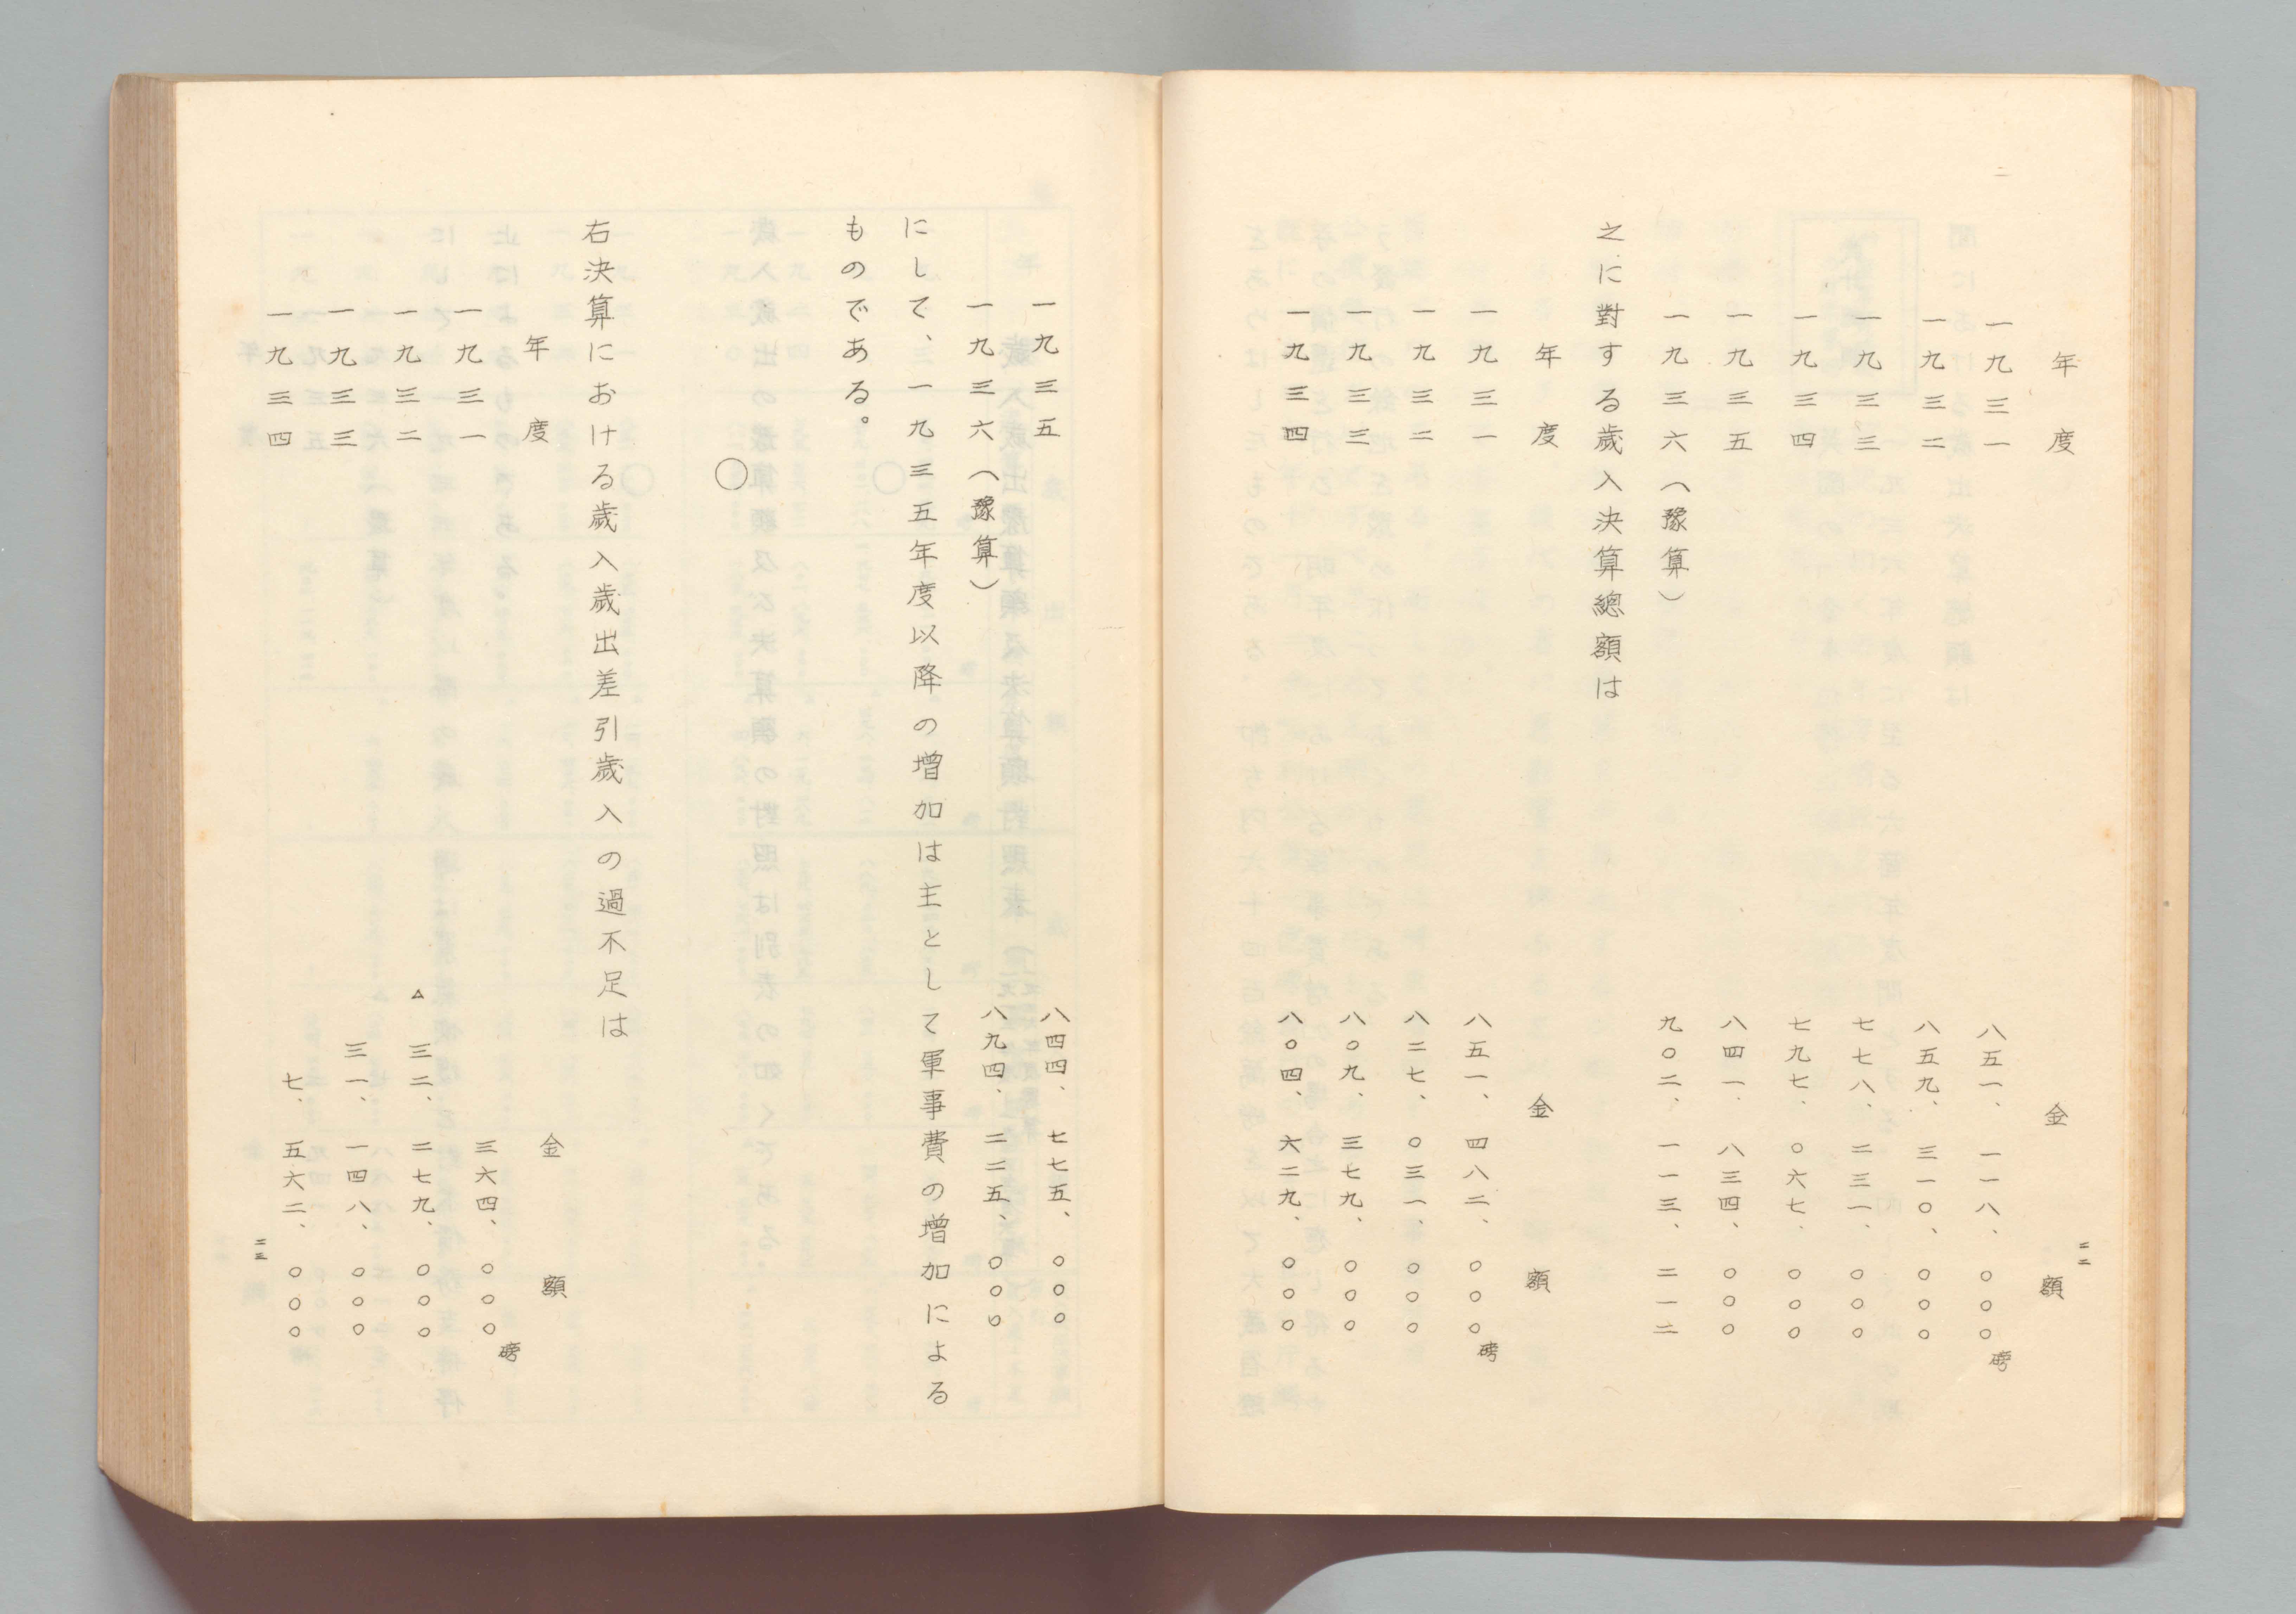 年度　金額
一九三一　八五一、一一八、〇〇〇磅
一九三二　八五九、三一〇、〇〇〇
一九三三　七七八、二三一、〇〇〇
一九三四　七九七、〇六七、〇〇〇
一九三五　八四一、八三四、〇〇〇
一九三六（豫算）　九〇二、一一三、二一二
之に對する歲入決算總額は
年度　金額
一九三一　八五一、四八二、〇〇〇磅
一九三二　八二七、〇三一、〇〇〇
一九三三　八〇九、三七九、〇〇〇
一九三四　八〇四、六二九、〇〇〇
二二
一九三五　八四四、七七五、〇〇〇
一九三六（豫算）　八九四、二二五、〇〇〇
にして、一九三五年度以降の増加は主として軍事費の増加による
ものである。
〇
右決算における歲入歲出差引歲入の過不足は
年度　金額
一九三一　三六四、〇〇〇磅
一九三二　△三二、二七九、〇〇〇
一九三三　三一、一四八、〇〇〇
一九三四　七、五六二、〇〇〇
二三